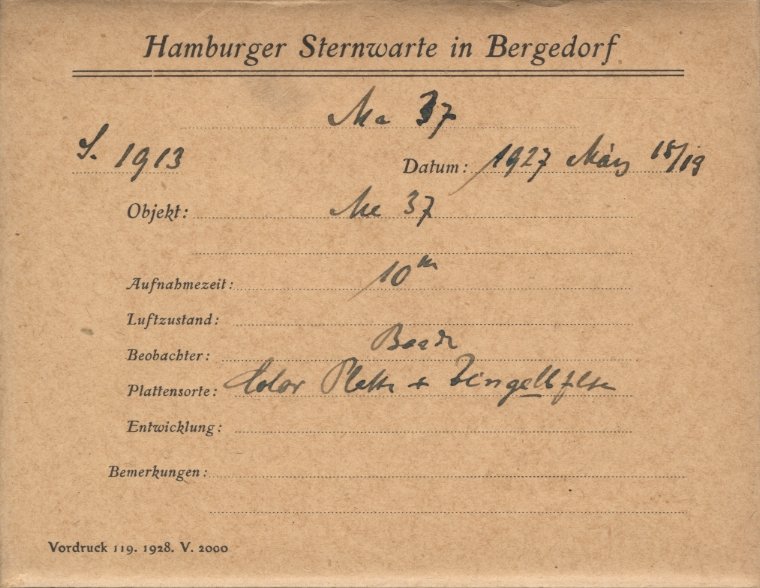 Hamburger Sternwarte in Bergedorf
Me 37
S. 1913 Datum: 1927 März 18/19
Objekt: Me 37
Aufnahmezeit: 10 m
Luftzustand:
Beobachter: Baade
Plattensorte: Color Platte +
Entwicklung:
Bemerkungen:
Vordruck 119. 1928. V. 2000